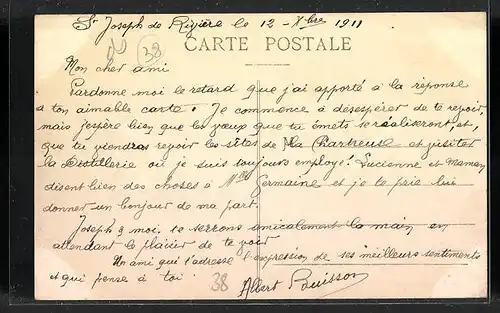 St Joseph de Rivière le 12 - Xbre 1911
38
CARTE POSTALE
Mon cher ami
Pardonne moi le retard que j'ai apporté à la réponse
à ton aimable carte. Je commence à désespérer de te revoir,
mais j'espère bien que les vœux que tu émets se réaliseront, et,
que tu viendras revoir les sites de la Chartreuse et visiter
la Distillerie où je suis toujours employé! Lucienne et maman
disent bien des choses à Mlle Germaine et je te prie lui
donner un bonjour de ma part.
Joseph & moi, te serrons amicalement la main en
attendant le plaisir de te voir
Un ami qui t'adresse l'expression de ses meilleurs sentiments
et qui pense à toi
38
Albert Buisson